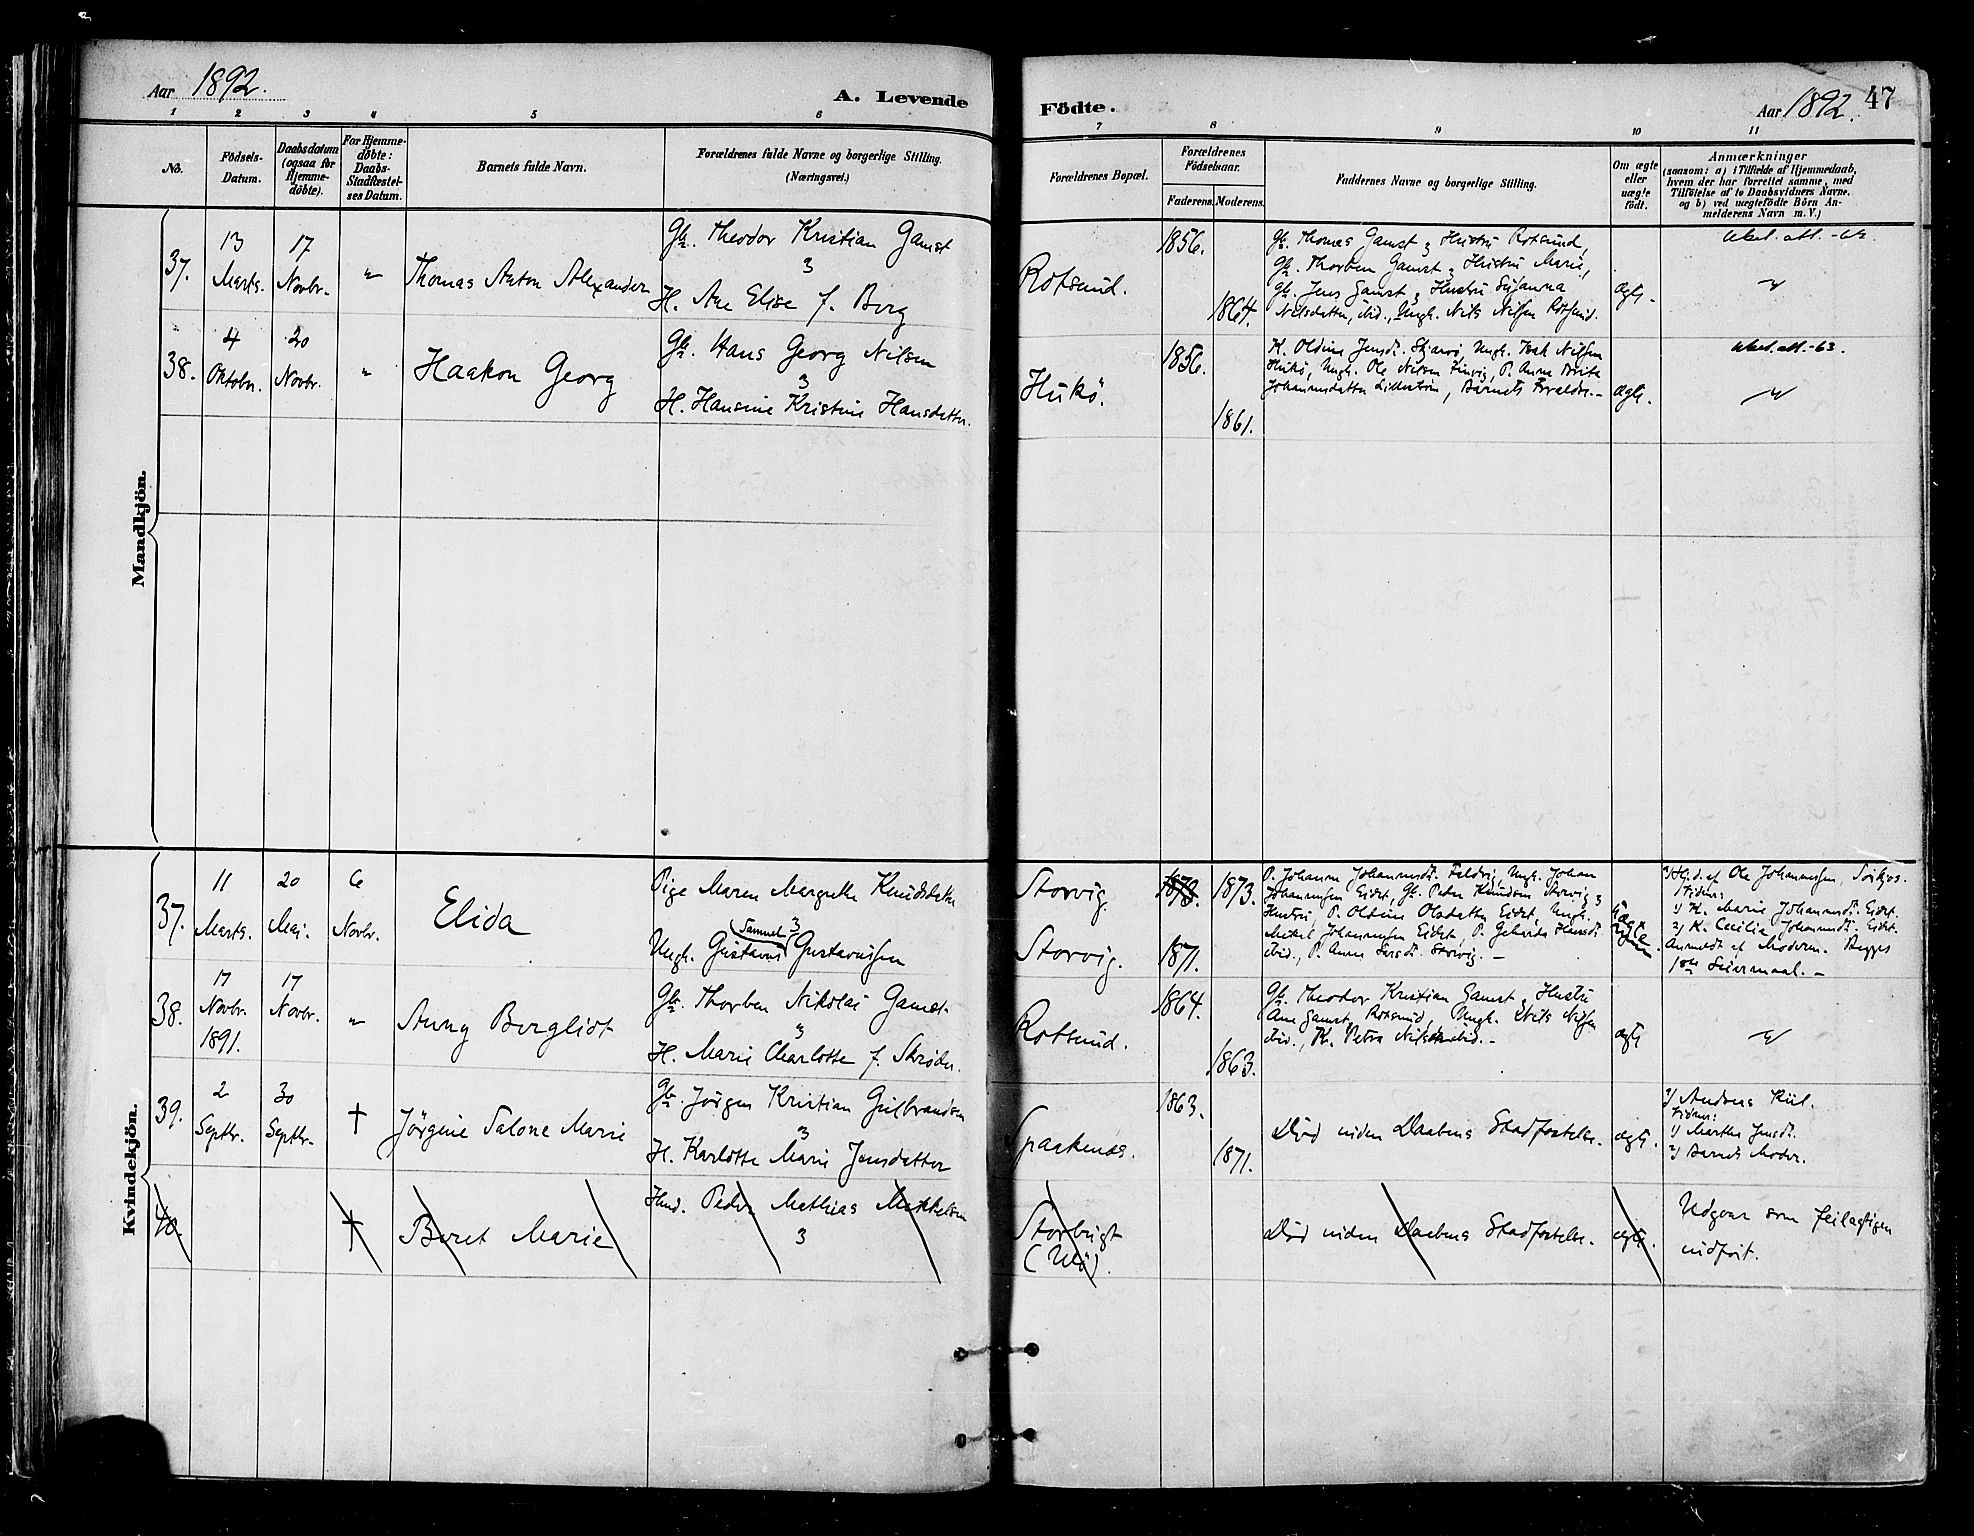 Aar 1892.
A. Levende
Födte.
Aar 1892.
47
1 2 3 4 5 6 7 8 9 10 11
No.
Födsels-Datum.
Daabsdatum (ogsaa for Hjemme-döbte).
For Hjemme-döbte: Daabs-Stadfæstel-ses Datum.
Barnets fulde Navn.
Forældrenes fulde Navne og borgerlige Stilling.
(Næringsvei.)
Forældrenes Bopæl.
Forældrenes Födselsaar.
Faderens. Moderens.
Faddernes Navne og borgerlige Stilling.
Om ægte eller uægte födt.
Anmærkninger
(saasom: a) i Tilfælde af Hjemmedaab,
hvem der har forrettet samme, med
Tilföielse af to Daabsvidners Navne,
og b) ved uægtefödte Börn An-
melderens Navn m. V.)
Mandkjön.
37.
13 Marts.
17 Novbr.
"
Thomas Anton Alexander
Gb. Theodor Kristian Gamst
&
H. Ane Elise f. Borg
Rotsund.
1856.
1864.
Gb. Thomas Gamst & Hustru Rotsund,
Gb. Thorben Gamst & Hustru Marie,
Gb. Jens Gamst & Hustru Susanna
Nilsdatter, ibid., Ungk. Nils Nilsen Rotsund.
ægte.
"
38.
4 Oktobr.
20 Novbr.
"
Haakon Georg
Gb. Hans Georg Nilsen
&
H. Hansine Kristine Hansdatter.
Hukö.
1856.
1861.
K. Oldine Jensdt. Skjærvö, Ungk. Isak Nilsen
Hukö, Ungk. Ole Nilsen, P. Anne Brita
Johannesdatter, Barnets Forældre.-
ægte.
att.-63.
"
Kvindekjön.
37.
11 Marts.
20 Mai.
6 Novbr.
Elida
Pige Maren Margrethe Knudsdatter
&
Samuel
Ungk. Gustavus Gustavussen
Storvig.
Storvig.
1873.
1871.
P. Johanna Johannesdt. Ungk. Johan
Johannesen Eidet, Gb. Peder Knudsen Storvig &
Hustru, P. Oldine Olsdatter Eidet, Ungk.
Mikkel Johannesen Eidet, P. Hansdt.
ibid., P. Anne Larsdt. Storvig.-
Uægte
Hjd. af Ole Johannesen,
Vidner:
1) K. Marie Johannesdt. Eidet.
2) K. Cecilia Johannesdt. Eidet.
Anmeldt af Moderen. Begges
1ste Leiermaal.-
38.
17 Novbr. 1891.
17 Novbr.
"
Aung Bergliot
Gb. Thorben Nikolai Gamst.
&
H. Marie Charlotte f. Skrøder.
Rotsund.
1864.
1863.
Gb. Theodor Kristian Gamst & Hustru
Ane Gamst, Rotsund, Ungk. Nils Nilsen
ibid., K. Petra Nilsen ibid.-
ægte
"
39.
2 Septbr.
30 Septbr.
†
Jörgine Salone Marie
Gb. Jörgen Kristian Gulbrandsen
&
H. Karlotte Marie Jensdatter
Spaakenes.
1863.
1871.
Död uden Daabens Stadfæstelse.
ægte.
Andreas Kiil.
Vidner:
1) Marthe Jensdt.
2) Barnets Moder.
40.
†
Beret Marie
Hmd. Peder Mathias Mikkelsen
&
Storbugt
(Ulö).
Död uden Daabens Stadfæstelse.
ægte.
Udgaar som feilagtigen
indfört.